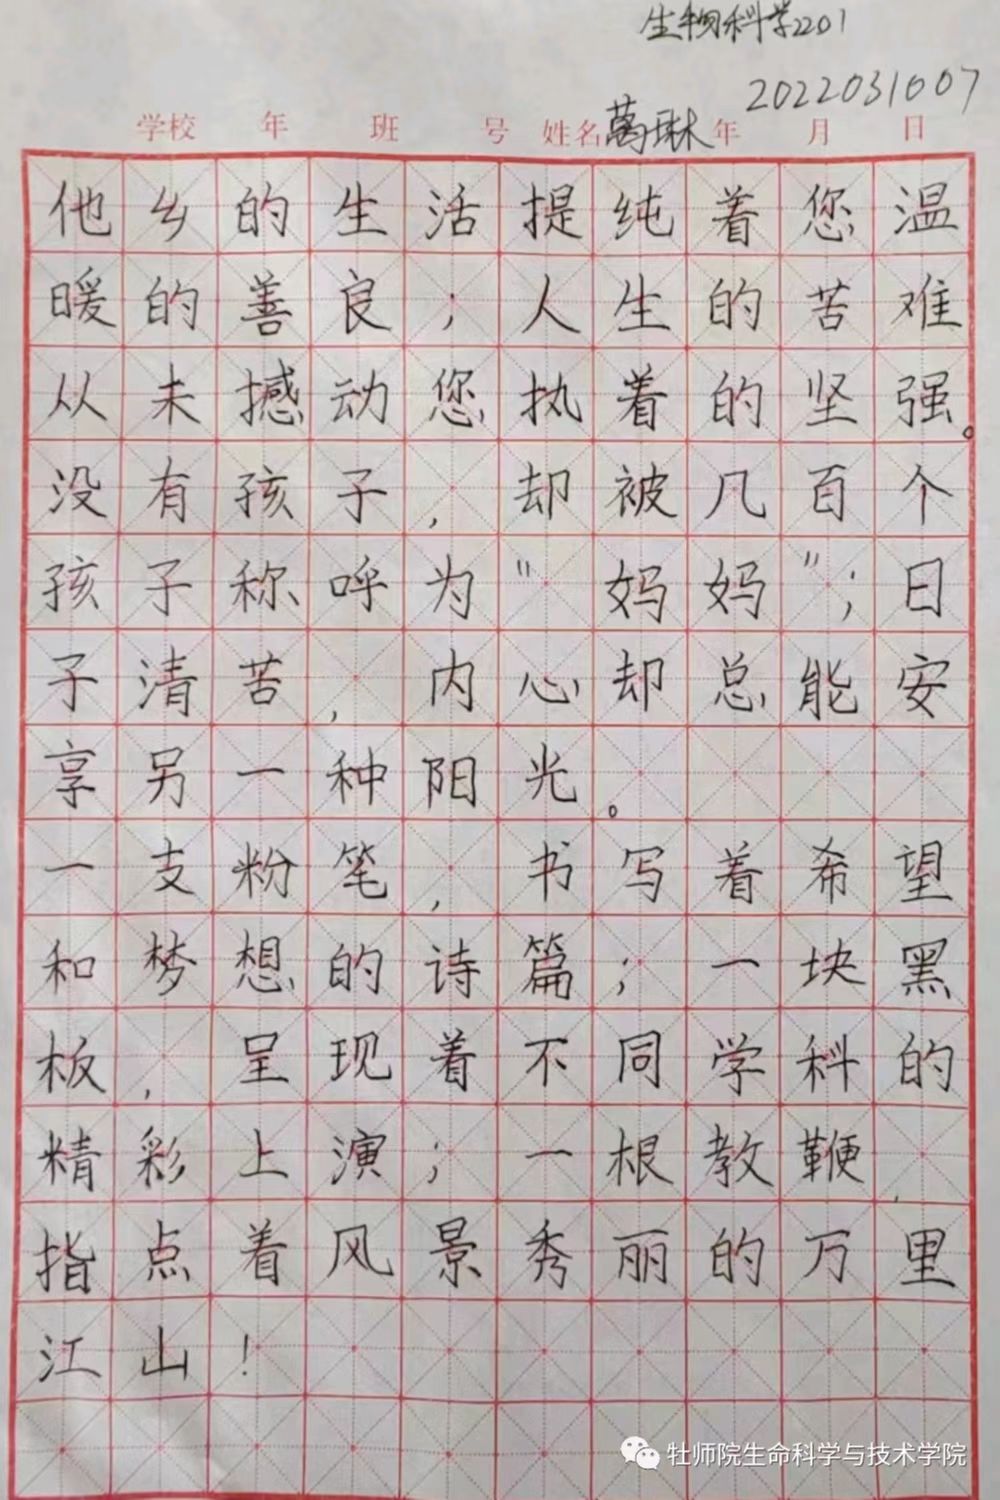 生物科学2201
2022031007
学校 年 班 号 姓名 葛琳 年 月 日
他乡的生活提纯着您温
暖的善良；人生的苦难
从未撼动您执着的坚强。
没有孩子，却被几百个
孩子称呼为“妈妈”；日
子清苦，内心却总能安
享另一种阳光。
一支粉笔，书写着希望
和梦想的诗篇；一块黑
板，呈现着不同学科的
精彩上演；一根教鞭，
指点着风景秀丽的万里
江山！
牡师院生命科学与技术学院